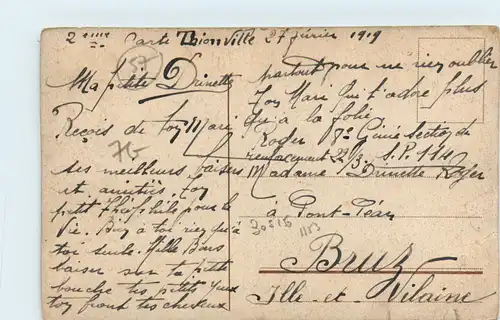 2ème Carte Thionville 27 février 1919
57
Ma petite Drinette
Reçois de ton Mari
75
ses meilleurs baisers
et amitiés, ton
petit Théophile pour la
Vie. Bien à toi rien qu'à
toi seule. Mille Bons
baiser sur ta petite
bouche tes petits yeux
ton front tes cheveux
partout pour ne rien oublier
Ton Mari qui t'adore plus
qu'à la folie
Roger 8e Génie Section de
remplacement 22/3. S.P. 114
Madame Drinette Roger
à Pont-Péan
20516
1183
Bruz
Ille-et-Vilaine